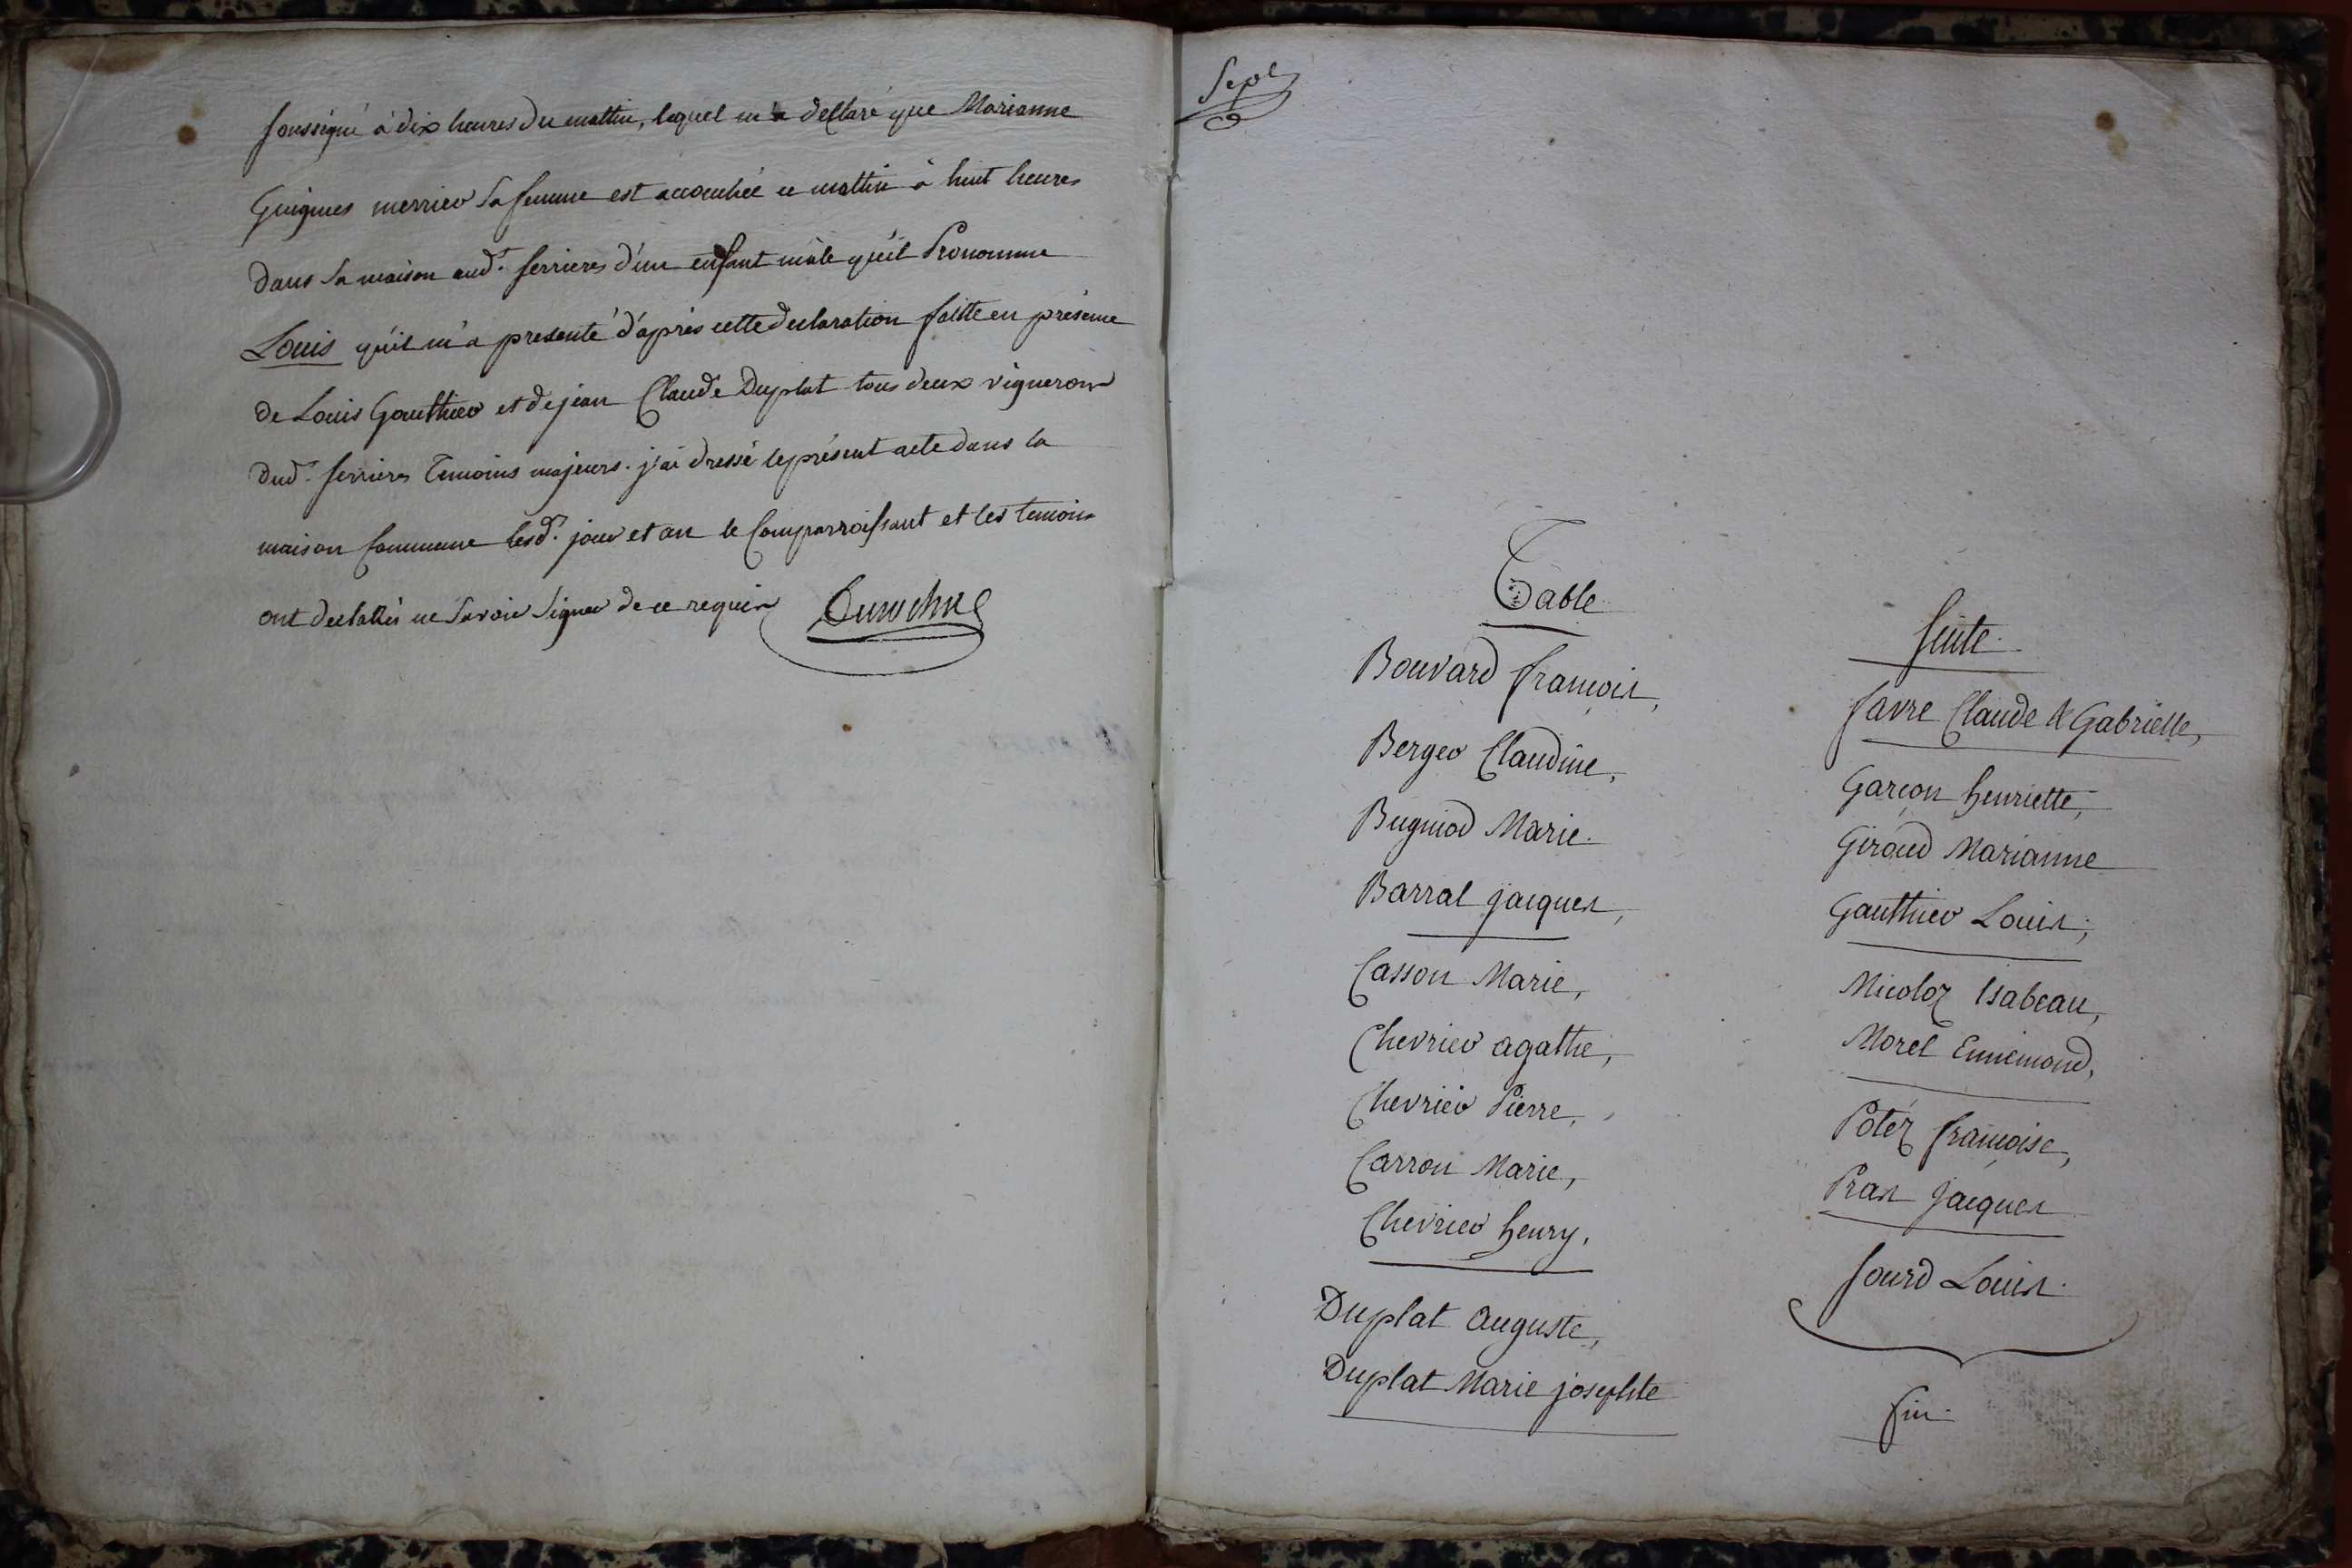 soussigné à dix heures du mattin, lequel m'a declaré que Marianne
Guignes merrier sa femme est accouchée ce mattin à huit heures
dans sa maison aud.t serrieres d'un enfant mâle qu'il Pronomme
Louis qu'il m'a presenté d'après cette declaration faitte en présence
de Louis Gauthier et de jean Claude Duplat tous deux vignerons
dud.t serrieres Temoins majeurs. j'ai dressé le présent acte dans la
maison Commune lesd.t jour et an le Comparroissant et les temoins
ont declarés ne savoir signer de ce requis
Sept
Table
Bouvard françois,
Berger Claudine,
Bugniod Marie.
Barral jacques,
Casson Marie,
Chevrier agathe,
Chevrier Pierre,
Carron Marie,
Chevrier henry.
Duplat Auguste,
Duplat Marie josephte
Suite.
favre Claude & Gabrielle,
Garçon henriette,
Giraud Marianne
Gauthier Louis,
Micoloz Isabeau,
Morel Ennemond,
Potez françoise,
Pras Jacques
Sourd Louis.
fin.